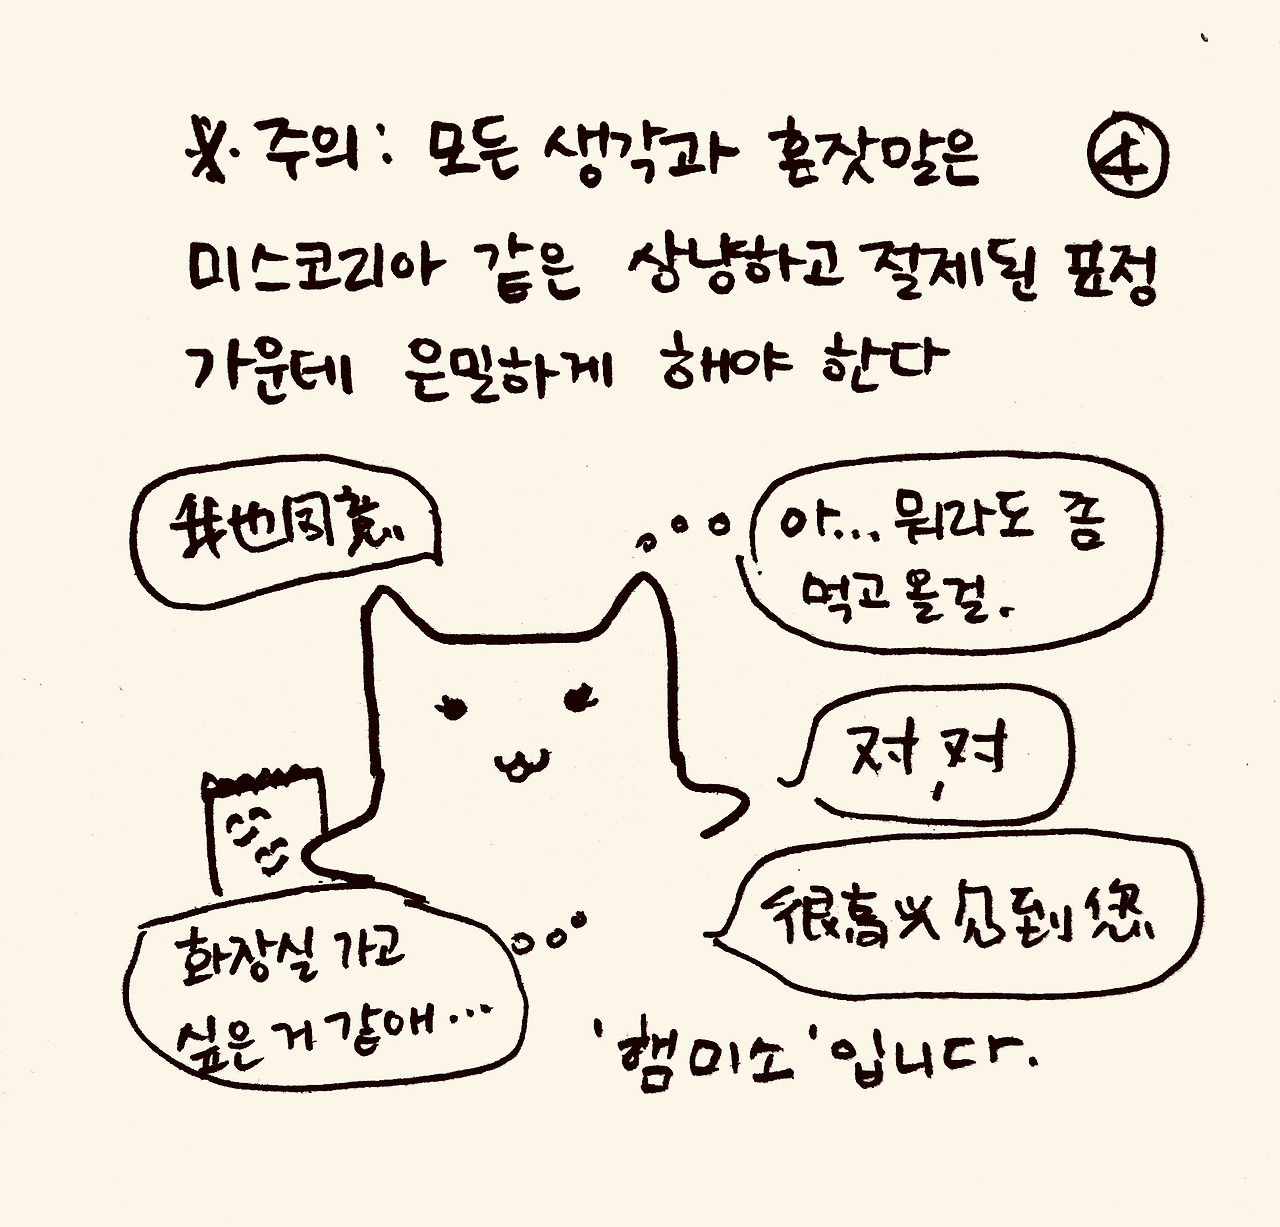 ※. 주의: 모든 생각과 혼잣말은 ④
미스코리아 같은 상냥하고 절제된 표정
가운데 은밀하게 해야 한다
我也同意..
아... 뭐라도 좀
먹고 올걸.
对, 对
很高兴 见到 您
화장실 가고
싶은 거 같애...
'햄미소' 입니다.